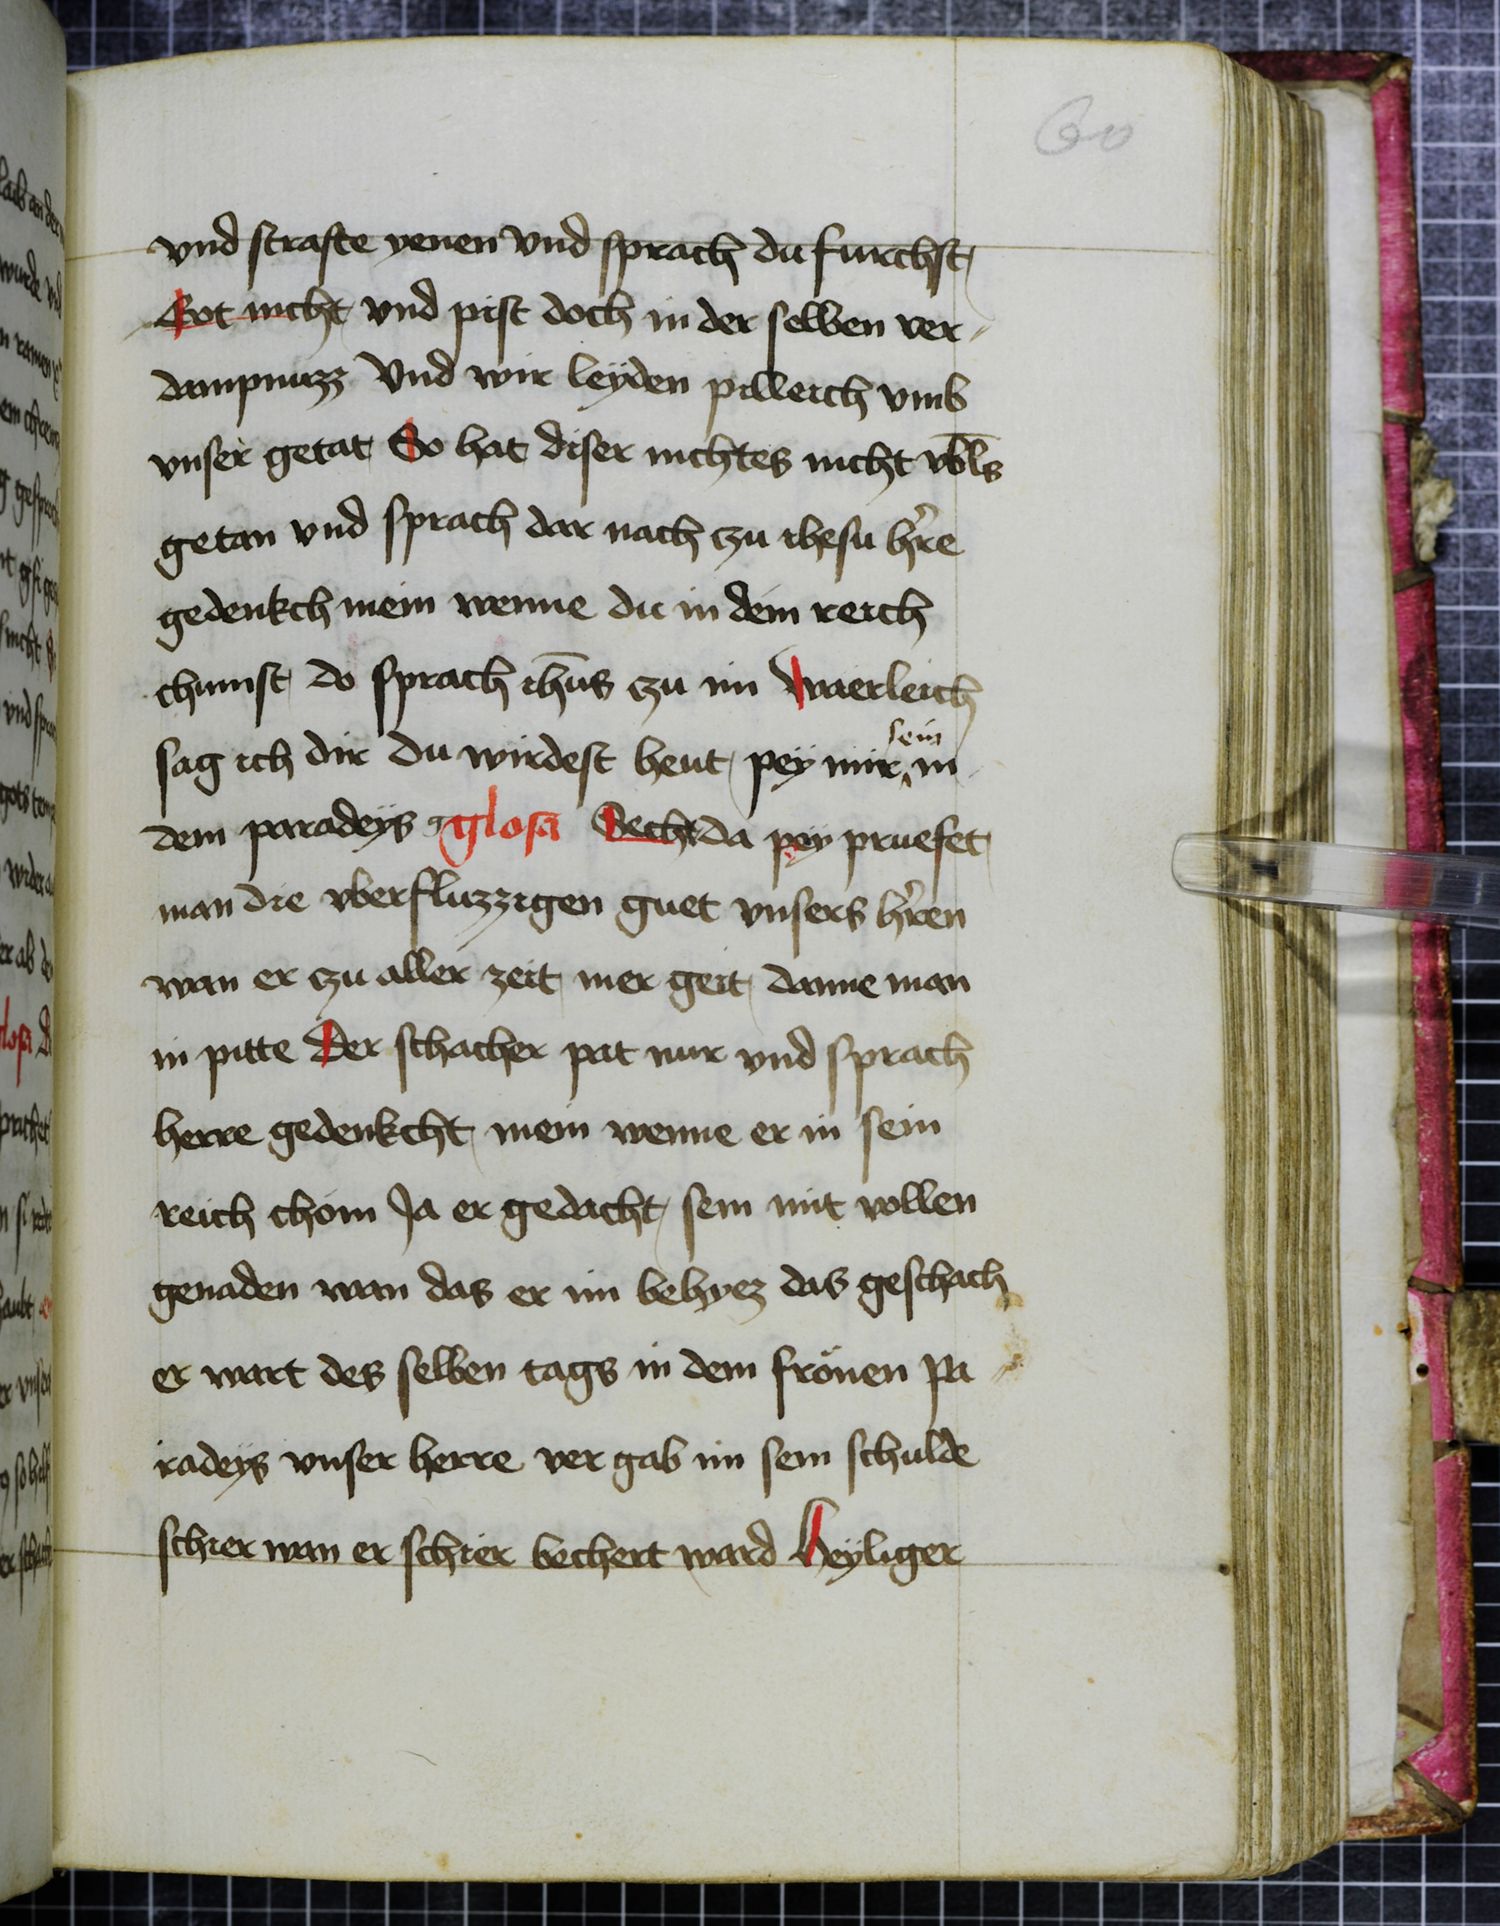 60
vnd strafte yenen Vnd sprach du furchst
Got nicht vnd pist doch in der selben ver-
dampnuzz Vnd wir leÿden pilleich vmb
vnser getat So hat diser nichtes nicht vbl̅s
getan vnd sprach dar nach czu ihesu hr̓e
gedenkch mein wenne du in dein reich
chumst do sprach ih̅us czu im Waerleich
sag ich dir du wirdest heut peÿ mir sein in
dem paradeÿs glosa Secht da peÿ pruefet
man die vberfluzzigen guet vnsers hr̓en
wan er czu aller zeit mer geit danne man
in pitte Der schacher pat nur vnd sprach
herre gedenkcht mein wenne er in sein
reich chöm Ja er gedacht sein mit vollen
genaden wan das er im behyez das geschach
er wart des selben tags in dem frönen pa-
radeÿs vnser herre ver gab im sein schulde
schier wan er schier bechert ward Heÿliger